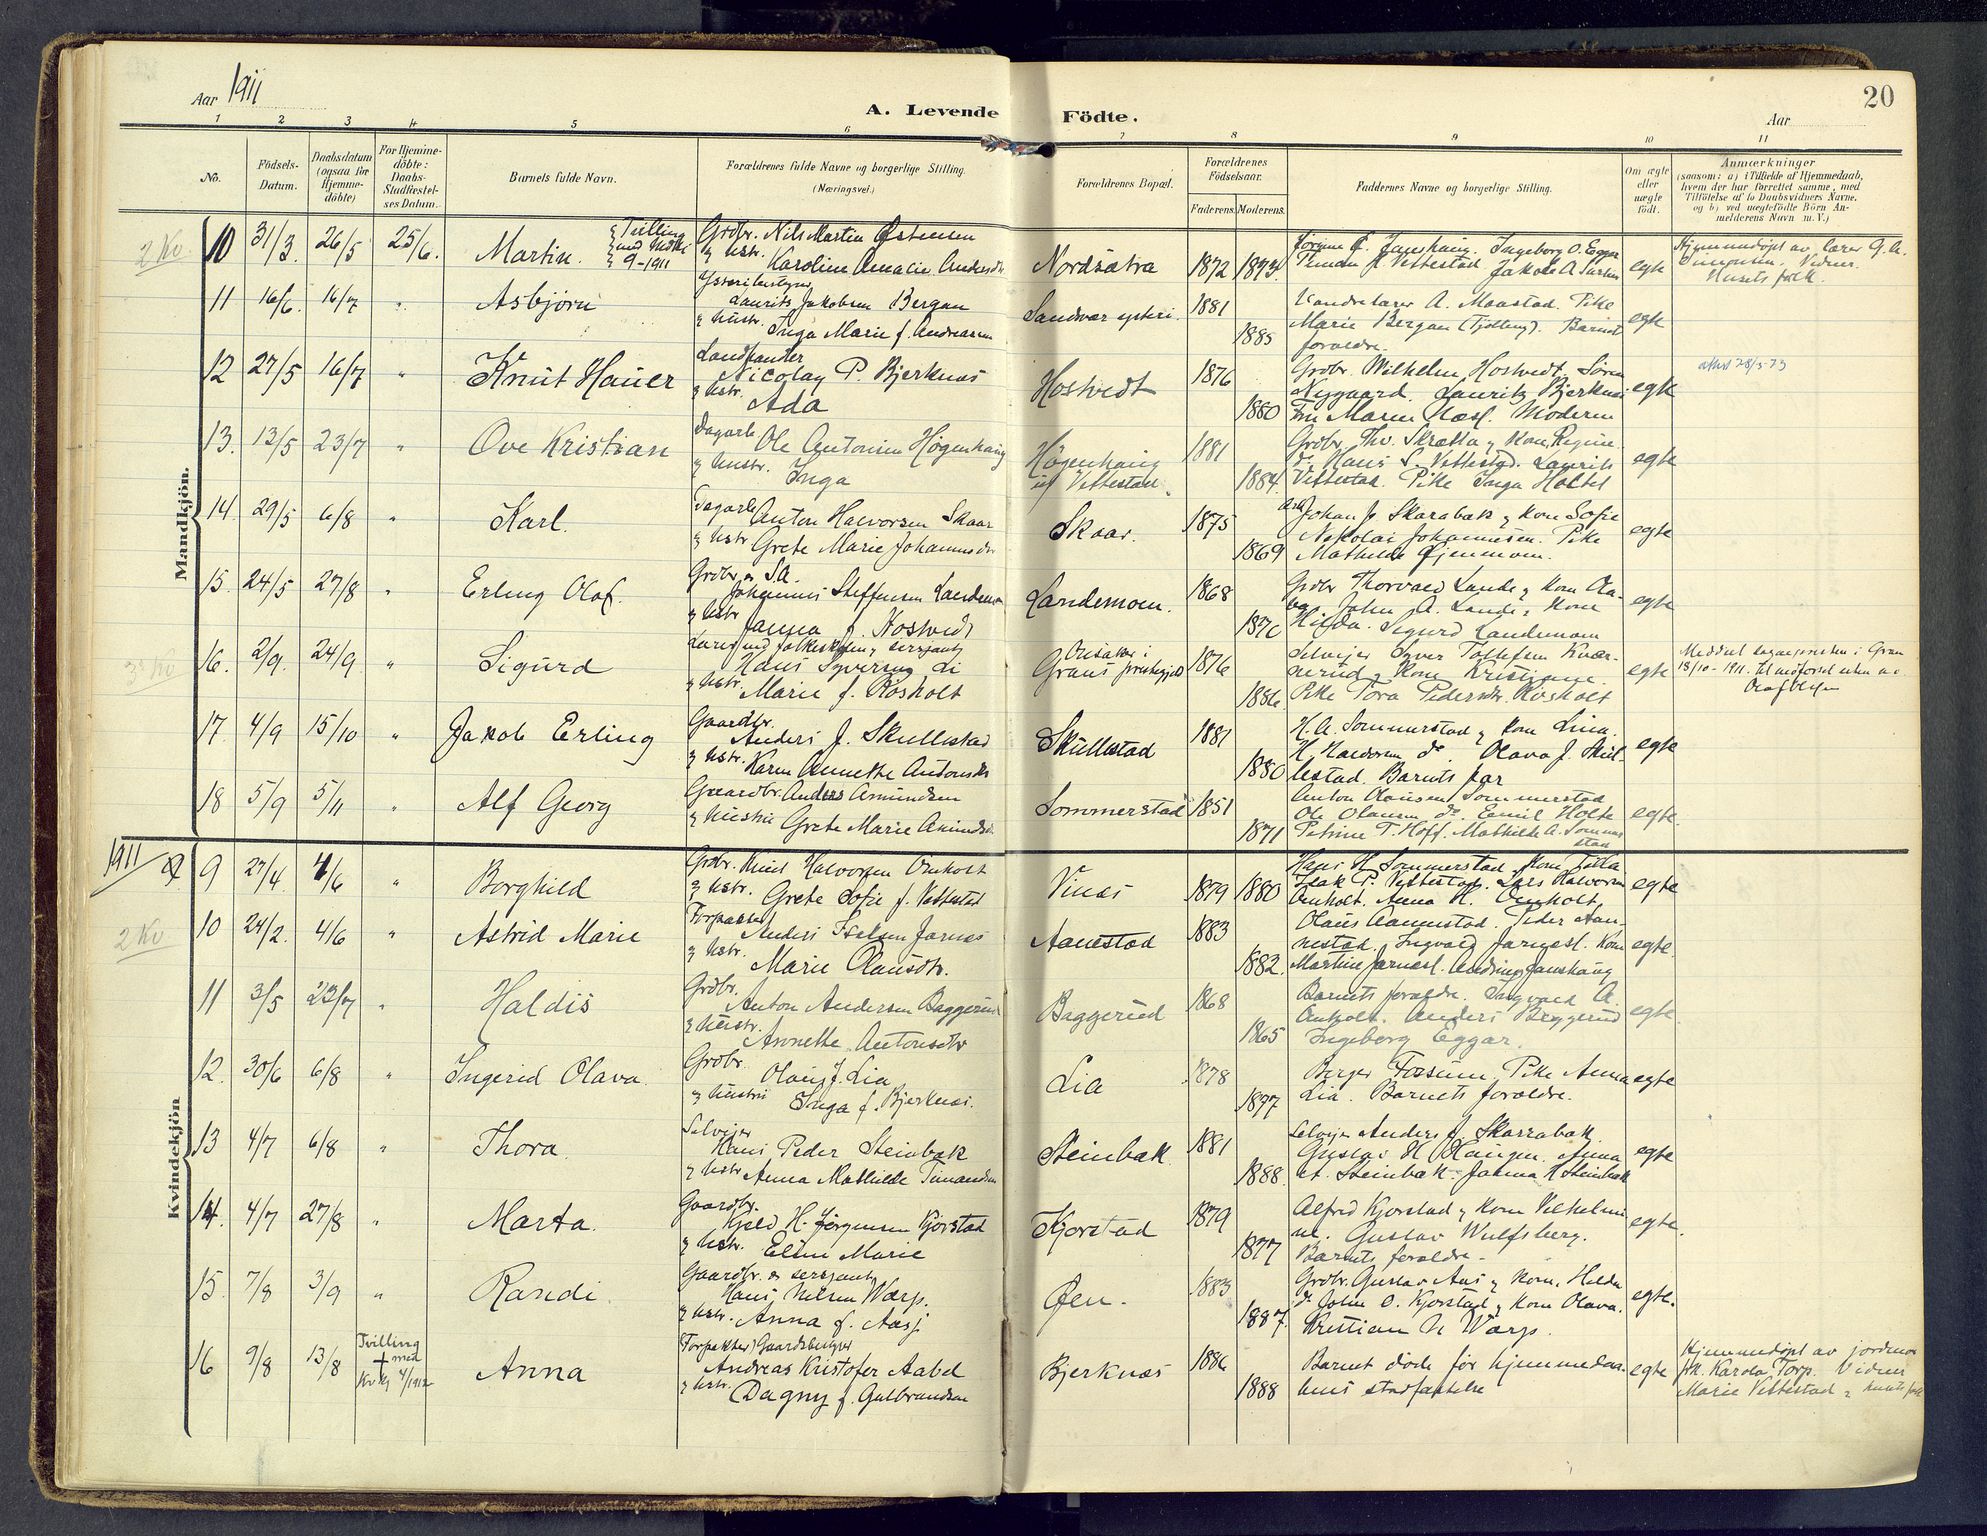 Aar 1911
A. Levende
Födte.
Aar
20
1 2 3 4 5 6 7 8 9 10 11
No.
Födsels-Datum.
Daabsdatum (ogsaa for Hjemmedöbte)
For Hjemmedöbte: Daabs-Stadfæstelses Datum.
Barnets fulde Navn.
Forældrenes fulde Navne og borgerlige Stilling. (Næringsvei.)
Forældrenes Bopæl.
Forældrenes Födselsaar.
Faderens. Moderens.
Faddernes Navne og borgerlige Stilling.
Om ægte eller uægte födt.
Anmærkninger (saasom: a) i Tilfælde af Hjemmedaab, hvem der har forrettet samme, med Tilföielse af to Daabsvidners Navne. og b) ved uægtefödte Börn Anmelderens Navn m. V.)
Mandkjön.
2 Kv
10 31/3. 26/5 25/6. Martin. Tvilling med 9-1911
Grdbr. Nils Martin Østensen
& hstr. Karoline Amalie
Nordsætra 1872 1873
Ingeborg O. Eggar
egte
Hjemmedøpt av lærer G. A. Simonsen. Vidner Husets folk.
11 16/6. 16/7 " Asbjørn
Laurits Jakobsen Bergan
& hustr. Inga Marie f. Andreassen
Sandvær ysteri. 1881 1885
Vandrelærer A. Maastad. Pike
Marie Bergan (Tjølling). Barnets
foreldre.
egte
12 27/5 16/7 " Knut Hauer
Landhandler
Nicolay P. Bjerknæs
& hstr. Ada
Hostvedt 1876 1880
Grdbr. Wilhelm Hostvedt, Søren
Nygaard. Lauritz Bjerknæs
Fru Maren Næsl. Moderen
egte
13. 13/5 23/7 " Ove Kristian
Dagarb. Ole Antonsen Høgenhaug
& hustr. Inga
Høgenhaug u/ Vettestad 1881 1884
Grdbr. Thv. Skratta & kone Regine
d. Hans S. Vettestad. Laurits
Vettestad. Pike Inga Holtet
egte
14. 29/5 6/8 " Karl.
Dagarb. Anton Halvorsen Skaar
& hstr Grete Marie Johannesdtr
Skaar. 1875 1869
Johan J. Skarabak & kone Sofie
Nikolai Johannesen. Pike
Mathilde Gjennemom.
egte
15. 24/5 27/8 " Erling Olaf.
Grdbr. S.A.
Johannes Steffensen Landemom
& hstr Janna f. Kostvedt
Landemom. 1868 1870
Grdbr Thorvald Lande & kone
John A. Lande & kone
Hilda. Sigurd Landemom
egte
3 Kv
16. 2/9. 24/9 " Sigurd
Lærer ved folkeskolen & sersjant
Hans Syversen Li
& hstr. Marie f. Rosholt
Grans prestegjeld 1876 1886
Selveier Syver Tollefsen Kværnerud
& kone Kristiane.
Pike Tora Pedersdtr. Rosholt
egte
Meddelt sognepresten i Gran
18/10-1911.
17. 4/9 15/10 " Jakob Erling
Gaardbr. Anders J. Skullestad
& hstr. Karen Annette Antonsdtr
Skullestad 1881 1880
H. A. Sommerstad & kone Lina.
H. Halvorsen do. Olava J. Skullestad.
Barnets far
egte
18 5/9 5/11 " Alf Georg
Gaardbr. Anders Amundsen
& hustru Grete Marie
Sommerstad 1851 1871
Anton Olausen Sommerstad
Ole Olausen do. Emil Holte
Petrine T. Hoff. Mathilde A. Sommerstad
egte.
1911
Kvindekjön
9 27/4. 4/6 " Borghild
Grdbr. Knut Halvorsen Omholt
& hstr. Grete Sofie f. Vettestad
Vinæs 1879 1880
Hans H. Sommerstad, kone
Isak P. Vettestad. Lars Halvorsen
Omholt. Anna H. Omholt.
egte
2 Kv
10 24/2. 4/6 " Astrid Marie
Forpakter
Anders Iselsen Jarnes
& hstr. Marie Olausdtr.
Aanestad 1883 1882.
Olaus Aannestad. Peder Aannestad.
Ingvald Jarnæsl. kone
Martine Jarnæsl. Janshaug
egte.
11 3/5 23/7 " Haldis
Grdbr. Anton Andersen Baggerud
& hustr. Annette Antonsdtr
Baggerud 1868 1865
Barnets foreldre. Ingvald A.
Omholt. Anders Baggerud
Ingeborg Eggar.
egte
12. 30/6 6/8 " Ingerid Olava.
Grdbr. Olaus J. Lia
& hustru Inga f. Bjerknæs.
Lia 1878 1877
Berger Fossum. Pike Anna
Lia. Barnets foreldre.
egte
13 4/7 6/8 " Thora.
Selveier
Hans Peder Steinbak
& hstr Anna Mathilde
Steinbak 1881 1888.
Selveier Anders J. Skarrabak.
Gustav H. Haugen. Anna
Steinbak. Janna H. Steinbak
egte
14. 4/7 27/8 " Marta.
Gaardbr. Kjeld H. Jørgensen Kjørstad
& hstr. Eline Marie
Kjørstad 1879 1877
Alfred Kjorstad & kone Vilhelmine.
Gustav Wulfsberg.
Barnets foreldre.
egte.
15. 7/8 3/9 " Randi.
Gaardbr. & sersjant
Hans Nilsen Warp.
& hstr. Anna f. Aasj
Øen. 1883 1887.
Grdbr. Gustav Aas & kone Hilda
do John O. Kjorstad & kone Olava.
Kristian N Warp.
egte.
16 9/8 13/8 Tvilling med Kv Kj 4/1912 Anna
(Forpakter) Gaardsbestyrer
Andreas Kristofer Aabel
& hstr. Dagny f. Gulbrandsen
Bjerknæs 1886 1888
Barnet døde før hjemmedaabens
stadfæstelse
egte
Hjemmedøpt av jordmor
frk. Karola Torp. Vidner
Marie Vettestad & husets folk